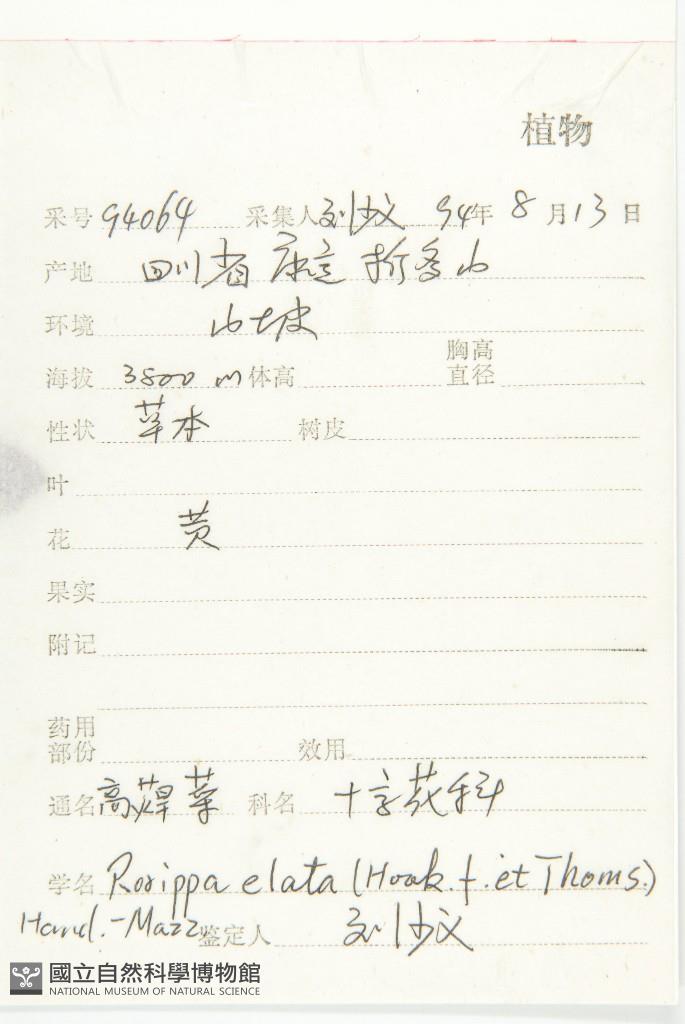 植物
采号 94064 采集人 刘沙汶 94年 8 月 13 日
产地 四川省 康定 折多山
环境 山坡
海拔 3800 m 体高 胸高直径
性状 草本 树皮
叶
花 黄
果实
附记
药用部份 效用
通名 高蔊菜 科名 十字花科
学名 Rorippa elata (Hook. f. et Thoms.)
Hand.-Mazz 鉴定人 刘沙汶
國立自然科學博物館
NATIONAL MUSEUM OF NATURAL SCIENCE